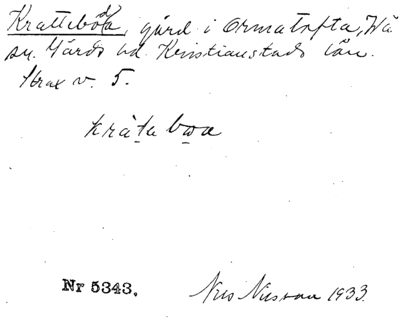 Krattebo͡da, gård i Ormatofta, Hä
sn. Gärds hd Kristianstads län.
Strax v. 5.
kråta boa
Nr 5343.
Nils Nilsson 1933.